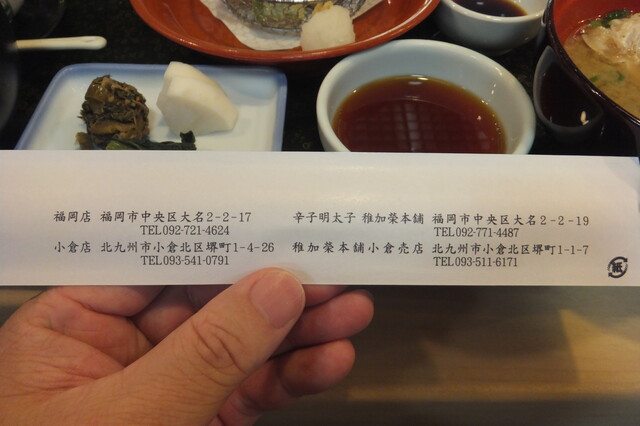 福岡店 福岡市中央区大名2-2-17
TEL092-721-4624
小倉店 北九州市小倉北区堺町1-4-26
TEL093-541-0791
辛子明太子 稚加榮本舗 福岡市中央区大名2-2-19
TEL092-771-4487
稚加榮本舗小倉売店 北九州市小倉北区堺町1-1-7
TEL093-511-6171
紙